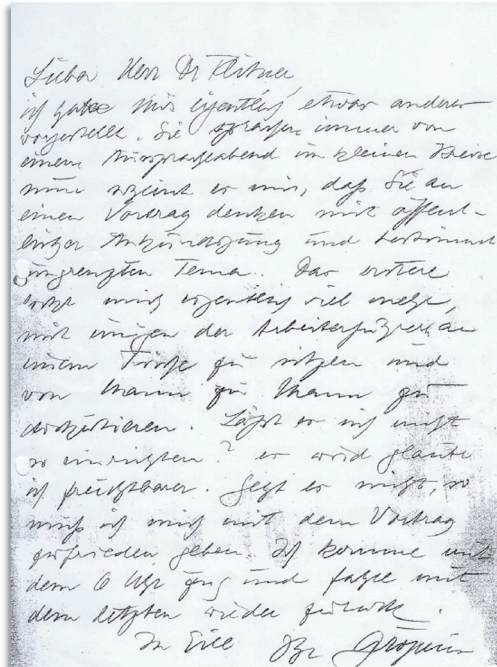 Lieber Herr Dr Flitner,
ich hatte mir eigentlich etwas anderes
vorgestellt. Sie sprachen immer von
einem Ausspracheabend im kleinen Kreise
nun scheint es mir, daß Sie an
einen Vortrag denken mit öffent-
licher Ankündigung und bestimmt
umgrenzten Tema. Das erstere
lockt mich eigentlich viel mehr,
mit einigen der Arbeiterführer an
einem Tische zu sitzen und
von Mann zu Mann zu
diskutieren. Läßt es sich nicht
so einrichten? es wird glaube
ich fruchtbarer. Geht es nicht, so
muß ich mich mit dem Vortrag
zufrieden geben. Ich komme mit
dem 6 Uhr Zug und fahre mit
dem letzten wieder zurück.
In Eile Ihr Gropius